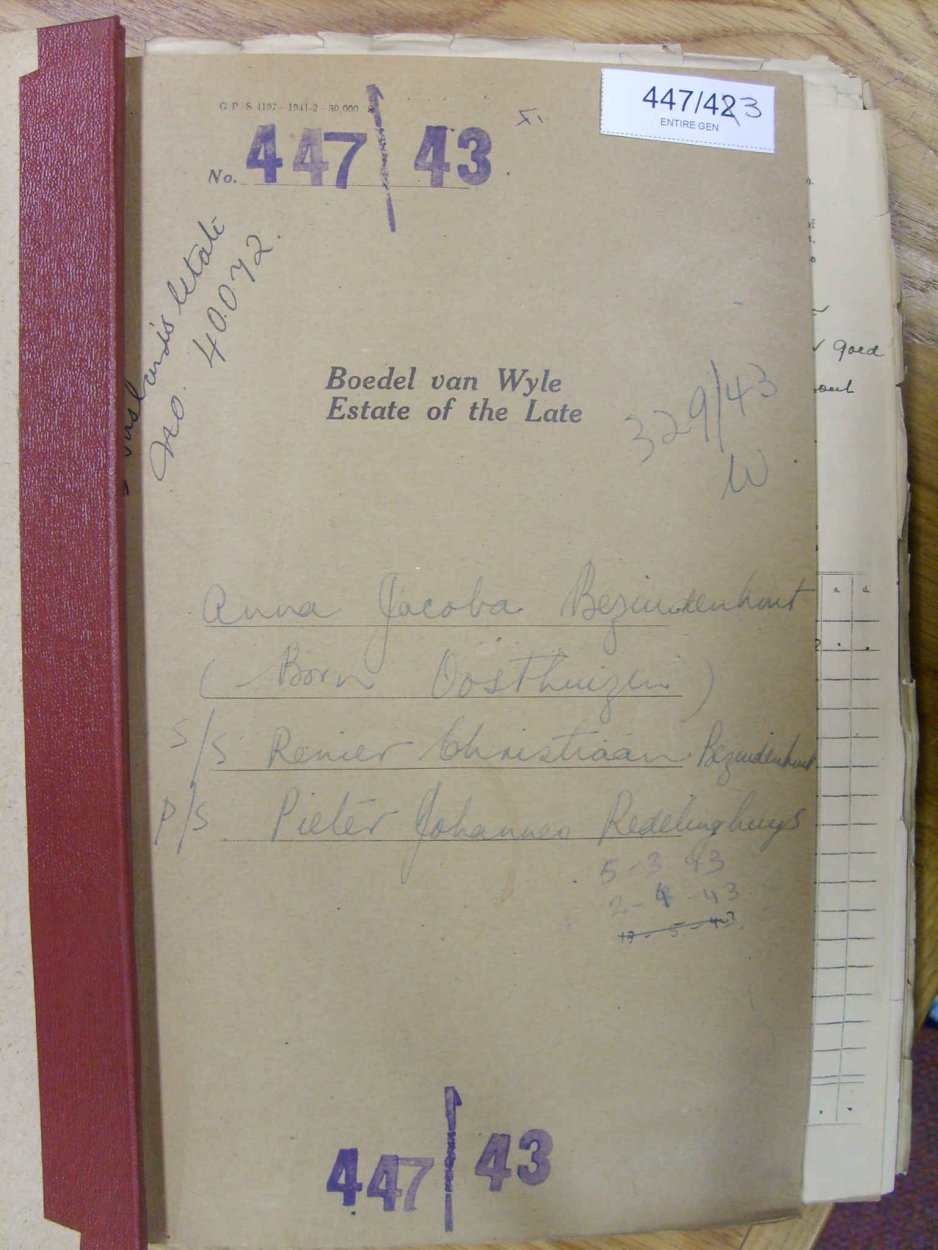 G.P.-S.4197-1941-2-30,000
447/423
ENTIRE GEN
XI
No. 447/43
Husband's Estate
No. 40072.
Boedel van Wyle
Estate of the Late
329/43
W
Anna Jacoba Bezuidenhout
(Born Oosthuizen)
S/S Renier Christiaan Bezuidenhout
P/S. Pieter Johannes Redelinghuys
5-3 43
2-4-43
17-5-43
447/43
goed